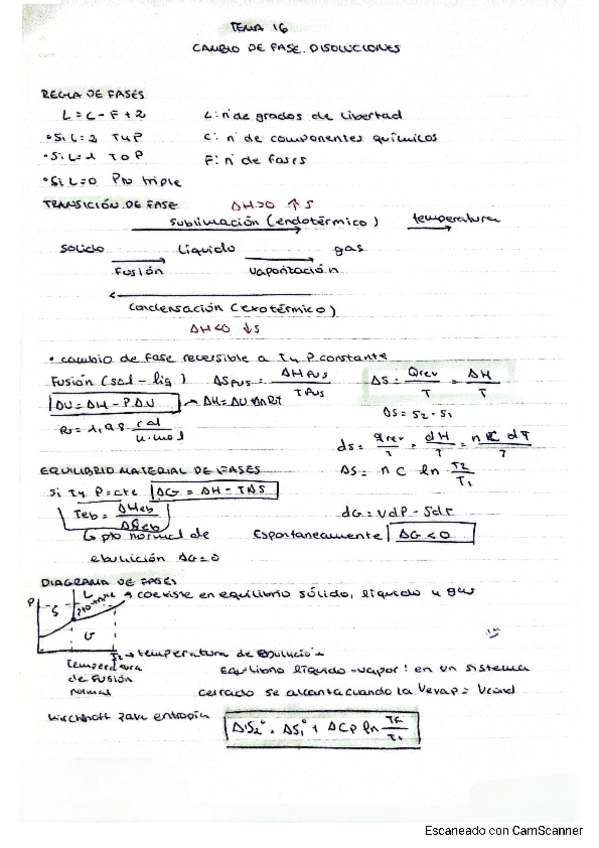 TEMA 16
CAMBIO DE FASE. DISOLUCIONES
REGLA DE FASES
L = C - F + 2
L: nº de grados de libertad
• Si L=2 T y P
C: nº de componentes químicos
• Si L=1 T o P
F: nº de fases
• Si L=0 Pto triple
TRANSICIÓN DE FASE
ΔH>0 ↑S
sublimación (endotérmico)
temperatura
sólido líquido gas
Fusión vaporización
condensación (exotérmico)
ΔH<0 ↓S
• cambio de fase reversible a T y P constante
Fusión (sol - liq) ΔS fus = ΔH fus / T fus
ΔS = Qrev / T = ΔH / T
ΔU = ΔH - P ΔV → ΔH = ΔU + ΔnRT
ΔS = S2 - S1
R = 1,98 cal / k·mol
dS = qrev / T = dH / T = n C dT / T
EQUILIBRIO MATERIAL DE FASES
ΔS = n C ln T2 / T1
Si T y P = cte ΔG = ΔH - TΔS
Teb = ΔHeb / ΔSeb
dG = VdP - SdT
pto normal de ebullición ΔG=0
Espontaneamente ΔG<0
DIAGRAMA DE FASES
P S L G
pto triple → coexiste en equilibrio sólido, líquido y gas
→ temperatura de ebullición
temperatura de fusión normal
Equilibrio líquido-vapor: en un sistema
cerrado se alcanza cuando la Vevap = Vcond
Kirchhoff para entropía ΔS2° = ΔS1° + ΔCp ln T2 / T1
Escaneado con CamScanner